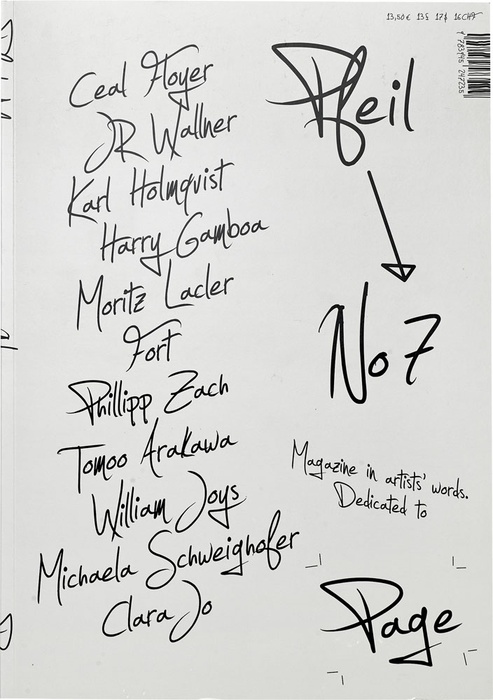 13,50 € 13 £ 17 $ 16 CHF
Ceal Floyer
JR Wallner
Karl Holmqvist
Harry Gamboa
Moritz Lacler
Fort
Phillipp Zach
Tomoo Arakawa
William Joys
Michaela Schweighofer
Clara Jo
Pfeil
No 7
Magazine in artists' words.
Dedicated to
Page